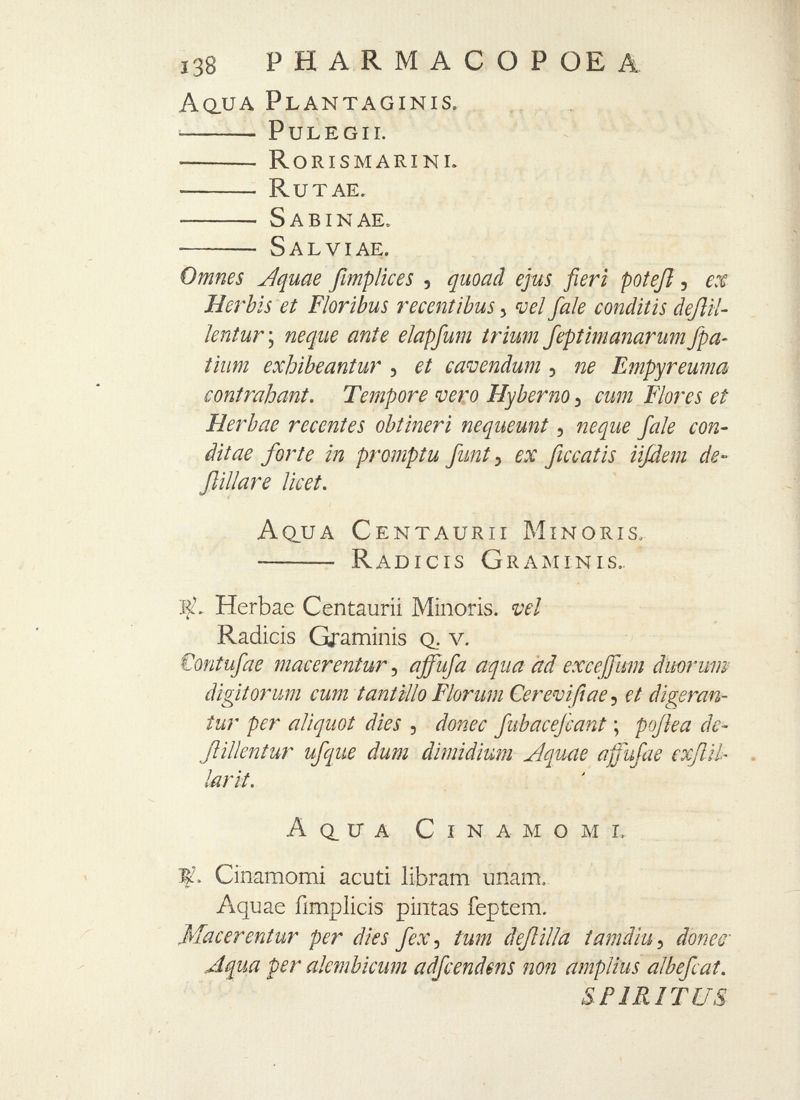 138 PHARMACOPOEA
AQUA PLANTAGINIS.
——— PULEGII.
——— RORISMARINI.
——— RUTAE.
——— SABINAE.
——— SALVIAE.
Omnes Aquae ſimplices, quoad ejus fieri poteſt, ex
Herbis et Floribus recentibus, vel ſale conditis deſtil-
lentur; neque ante elapſum trium ſeptimanarum ſpa-
tium exhibeantur, et cavendum, ne Empyreuma
contrahant. Tempore vero Hyberno, cum Flores et
Herbae recentes obtineri nequeunt, neque ſale con-
ditae forte in promptu ſunt, ex ſiccatis iiſdem de-
ſtillare licet.
AQUA CENTAURII MINORIS.
——— RADICIS GRAMINIS.
℞. Herbae Centaurii Minoris. vel
Radicis Graminis Q. V.
Contuſae macerentur, affuſa aqua ad exceſſum duorum
digitorum cum tantillo Florum Cereviſiae, et digeran-
tur per aliquot dies, donec ſubaceſcant; poſtea de-
ſtillentur uſque dum dimidium Aquae affuſae exſtil-
larit.
AQUA CINAMOMI.
℞. Cinamomi acuti libram unam.
Aquae ſimplicis pintas ſeptem.
Macerentur per dies ſex, tum deſtilla tamdiu, donec
Aqua per alembicum adſcendens non amplius albeſcat.
SPIRITUS